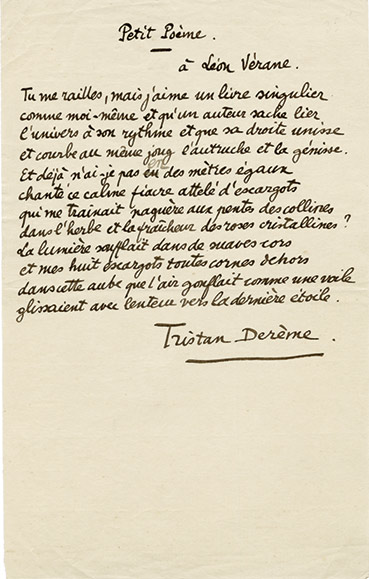 Petit Poème.
à Léon Vérane.
Tu me railles, mais j'aime un livre singulier
comme moi-même et qu'un auteur sache lier
l'univers à son rythme et que sa droite unisse
et courbe au même joug l'autruche et la génisse.
Et déjà n'ai-je pas en des mètres égaux
chanté ce caline fiacre attelé d'escargots
qui me trainait naguère aux pentes des collines
dans l'herbe et la fraîcheur des roses cristallines ?
La lumière soufflait dans de suaves cors
et mes huit escargots toutes cornes dehors
dans cette aube que l'air gonflait comme une voile
glissaient avec lenteur vers la dernière étoile.
Tristan Derème.